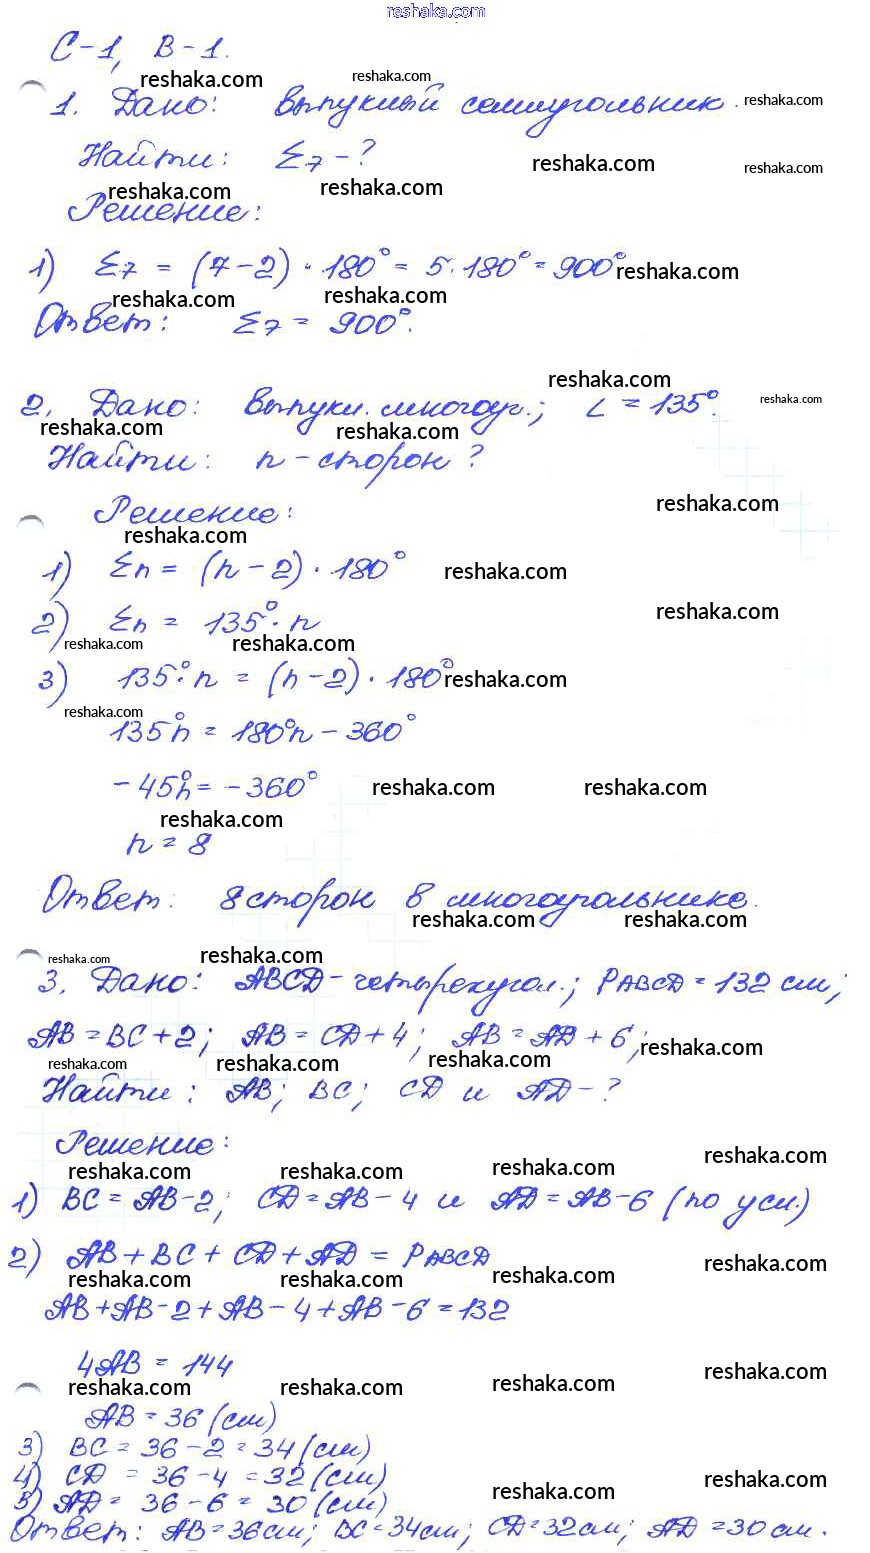 reshaka.com
С-1, В-1.
reshaka.com reshaka.com
1. Дано: выпуклый семиугольник. reshaka.com
Найти: Σ7 - ? reshaka.com reshaka.com
reshaka.com reshaka.com
Решение:
1) Σ7 = (7-2)·180° = 5·180° = 900° reshaka.com
reshaka.com reshaka.com
Ответ: Σ7 = 900°.
reshaka.com
2. Дано: выпукл. многоуг.; ∠ = 135°. reshaka.com
reshaka.com reshaka.com
Найти: n - сторон ?
reshaka.com
Решение:
reshaka.com
1) Σn = (n-2)·180° reshaka.com
reshaka.com
2) Σn = 135°·n
reshaka.com reshaka.com
3) 135°·n = (n-2)·180° reshaka.com
reshaka.com
135°n = 180°n - 360°
-45°n = -360° reshaka.com reshaka.com
reshaka.com
n = 8
Ответ: 8 сторон в многоугольнике.
reshaka.com reshaka.com
reshaka.com reshaka.com
3. Дано: ABCD - четырехугол.; PABCD = 132 см;
AB = BC + 2; AB = CD + 4; AB = AD + 6; reshaka.com
reshaka.com reshaka.com reshaka.com
Найти: AB; BC; CD и AD - ?
Решение:
reshaka.com reshaka.com reshaka.com reshaka.com
1) BC = AB - 2; CD = AB - 4 и AD = AB - 6 (по усл.)
2) AB + BC + CD + AD = PABCD
reshaka.com reshaka.com reshaka.com reshaka.com
AB + AB - 2 + AB - 4 + AB - 6 = 132
4AB = 144
reshaka.com reshaka.com reshaka.com reshaka.com
AB = 36 (см)
3) BC = 36 - 2 = 34 (см)
4) CD = 36 - 4 = 32 (см)
reshaka.com reshaka.com
5) AD = 36 - 6 = 30 (см)
Ответ: AB = 36 см; BC = 34 см; CD = 32 см; AD = 30 см.